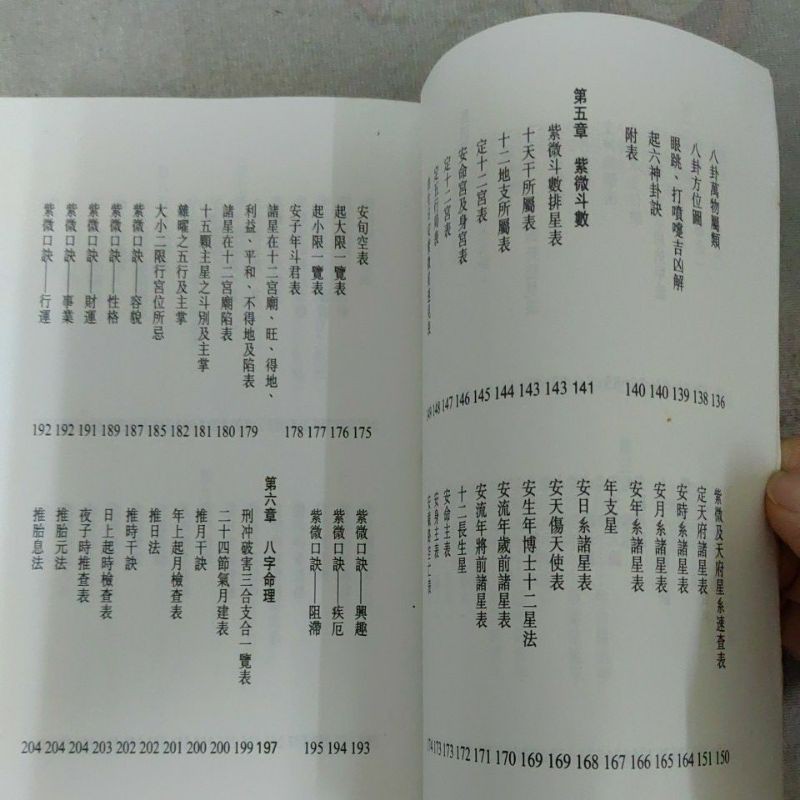 八卦萬物屬類 136
八卦方位圖 138
眼跳、打噴嚏吉凶解 139
起六神卦訣 140
附表 140
第五章 紫微斗數 141
紫微斗數排星表 143
十天干所屬表 143
十二地支所屬表 144
定十二宮表 145
安命宮及身宮表 146
定十二宮表 147
定五行局表 148
149
紫微及天府星系速查表 150
定天府諸星表 151
安時系諸星表 164
安月系諸星表 165
安年系諸星表 166
年支星 167
安日系諸星表 168
安天傷天使表 169
安生年博士十二星法 169
安流年歲前諸星表 170
安流年將前諸星表 171
十二長生星 172
安命主表 173
安身主表 173
安截路空亡表 174
安旬空表 175
起大限一覽表 176
起小限一覽表 177
安子年斗君表 178
諸星在十二宮廟、旺、得地、
利益、平和、不得地及陷表 179
諸星在十二宮廟陷表 180
十五顆主星之斗別及主掌 181
雜曜之五行及主掌 182
大小二限行宮位所忌 185
紫微口訣——容貌 187
紫微口訣——性格 189
紫微口訣——財運 191
紫微口訣——事業 192
紫微口訣——行運 192
紫微口訣——興趣 193
紫微口訣——疾厄 194
紫微口訣——阻滯 195
第六章 八字命理 197
刑冲破害三合支合一覽表 199
二十四節氣月建表 200
推月干訣 200
年上起月檢查表 201
推日法 202
推時干訣 202
日上起時檢查表 203
夜子時推查表 204
推胎元法 204
推胎息法 204